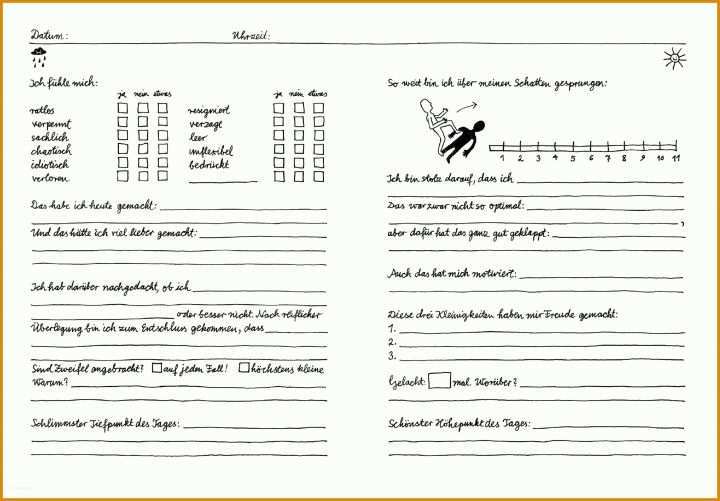 Datum:
Uhrzeit:
Ich fühle mich:
ja nein etwas
ja nein etwas
ratlos
verpennt
sachlich
chaotisch
idiotisch
verloren
resigniert
verzagt
leer
unflexibel
bedrückt
Das habe ich heute gemacht:
Und das hätte ich viel lieber gemacht:
Ich hab darüber nachgedacht, ob ich
oder besser nicht. Nach reiflicher
Überlegung bin ich zum Entschluss gekommen, dass
Sind Zweifel angebracht? auf jeden Fall! höchstens kleine
Warum?
Schlimmster Tiefpunkt des Tages:
So weit bin ich über meinen Schatten gesprungen:
1 2 3 4 5 6 7 8 9 10 11
Ich bin stolz darauf, dass ich
Das war zwar nicht so optimal:
,
aber dafür hat das ganz gut geklappt:
Auch das hat mich motiviert:
Diese drei Kleinigkeiten haben mir Freude gemacht:
1.
2.
3.
Gelacht: mal. Worüber?
Schönster Höhepunkt des Tages: